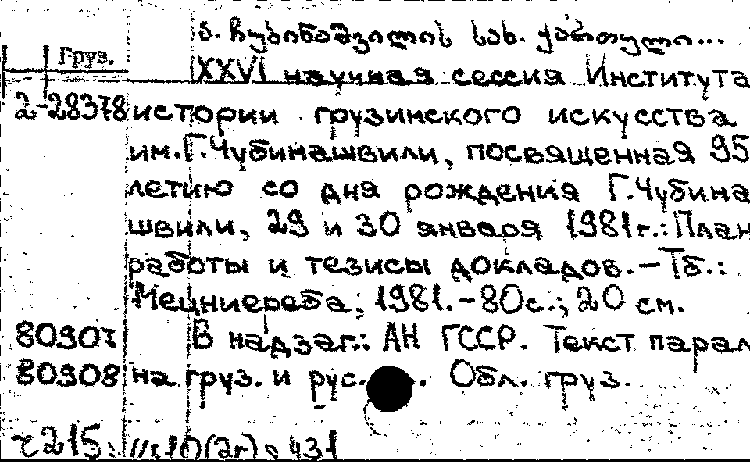 გ. ჩუბინაშვილის სახ. ქართული...
Груз.
XXVI научная сессия Института
2-28378 истории грузинского искусства
им. Г. Чубинашвили, посвященная 95
летию со дня рождения Г. Чубина
швили, 29 и 30 января 1981 г.: План
работы и тезисы докладов. - Тб.:
Мецниереба, 1981. - 80 с.; 20 см.
80907 В надзаг.: АН ГССР. Текст парал
80908 на груз. и рус. Обл. груз.